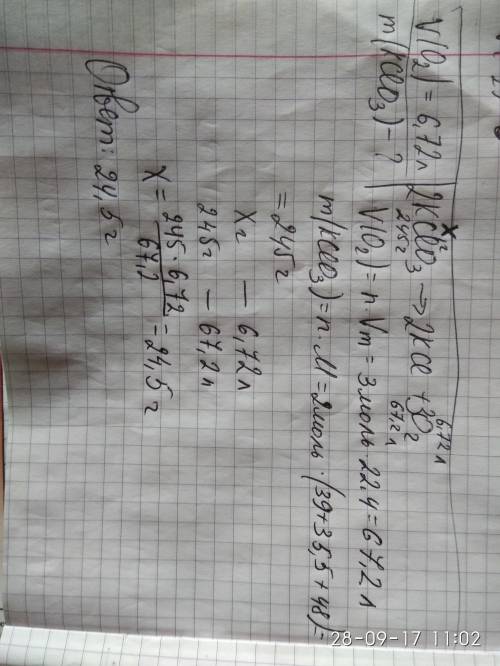 V(O₂) = 6,72л
m(KClO₃) - ?
xг 6,72л
2KClO₃ → 2KCl + 3O₂
245г 67,2л
V(O₂) = n · Vm = 3моль · 22.4 = 67,2 л
m(KClO₃) = n · M = 2моль · (39+35,5+48) =
= 245г
xг — 6,72л
245г — 67,2л
x = 245 · 6,72 / 67,2 = 24,5 г
Ответ: 24,5 г
28-09-17 11:02